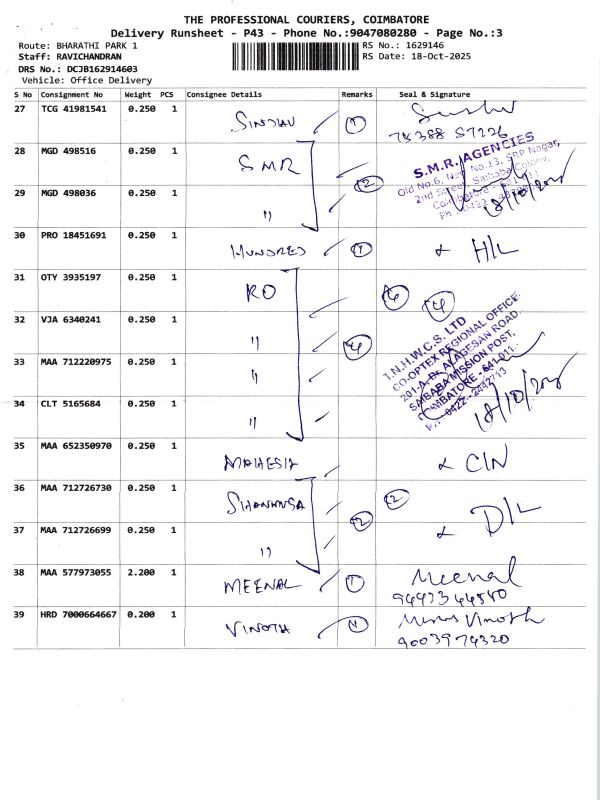 THE PROFESSIONAL COURIERS, COIMBATORE
Delivery Runsheet - P43 - Phone No.:9047080280 - Page No.:3
Route: BHARATHI PARK 1
RS No.: 1629146
Staff: RAVICHANDRAN
RS Date: 18-Oct-2025
DRS No.: DCJB162914603
Vehicle: Office Delivery
S No Consignment No Weight PCS Consignee Details Remarks Seal & Signature
27 TCG 41981541 0.250 1 1
28 MGD 498516 0.250 1 SMR 2
S.M.R. AGENCIES
Old No.6, New No.13, SRP Nagar,
2nd Street, Saibaba Colony,
18/10/2025
29 MGD 498036 0.250 1 "
30 PRO 18451691 0.250 1 HUNDRED 1 H/L
31 OTY 3935197 0.250 1 RO 4
32 VJA 6340241 0.250 1 " 4
T.N.H.W.C.S. LTD
CO-OPTEX REGIONAL OFFICE
201-A, Dr. ALAGESAN ROAD,
SAIBABA MISSION POST,
COIMBATORE - 641 011.
PH : 0422 - 2442713
18/10/2025
33 MAA 712220975 0.250 1 "
34 CLT 5165684 0.250 1 "
35 MAA 652350970 0.250 1 MAHESH C/N
36 MAA 712726730 0.250 1 2 2
37 MAA 712726699 0.250 1 " D/L
38 MAA 577973055 2.200 1 MEENAL 1 Meenal
39 HRD 7000664667 0.200 1 VINOTH Vinoth
9003974320